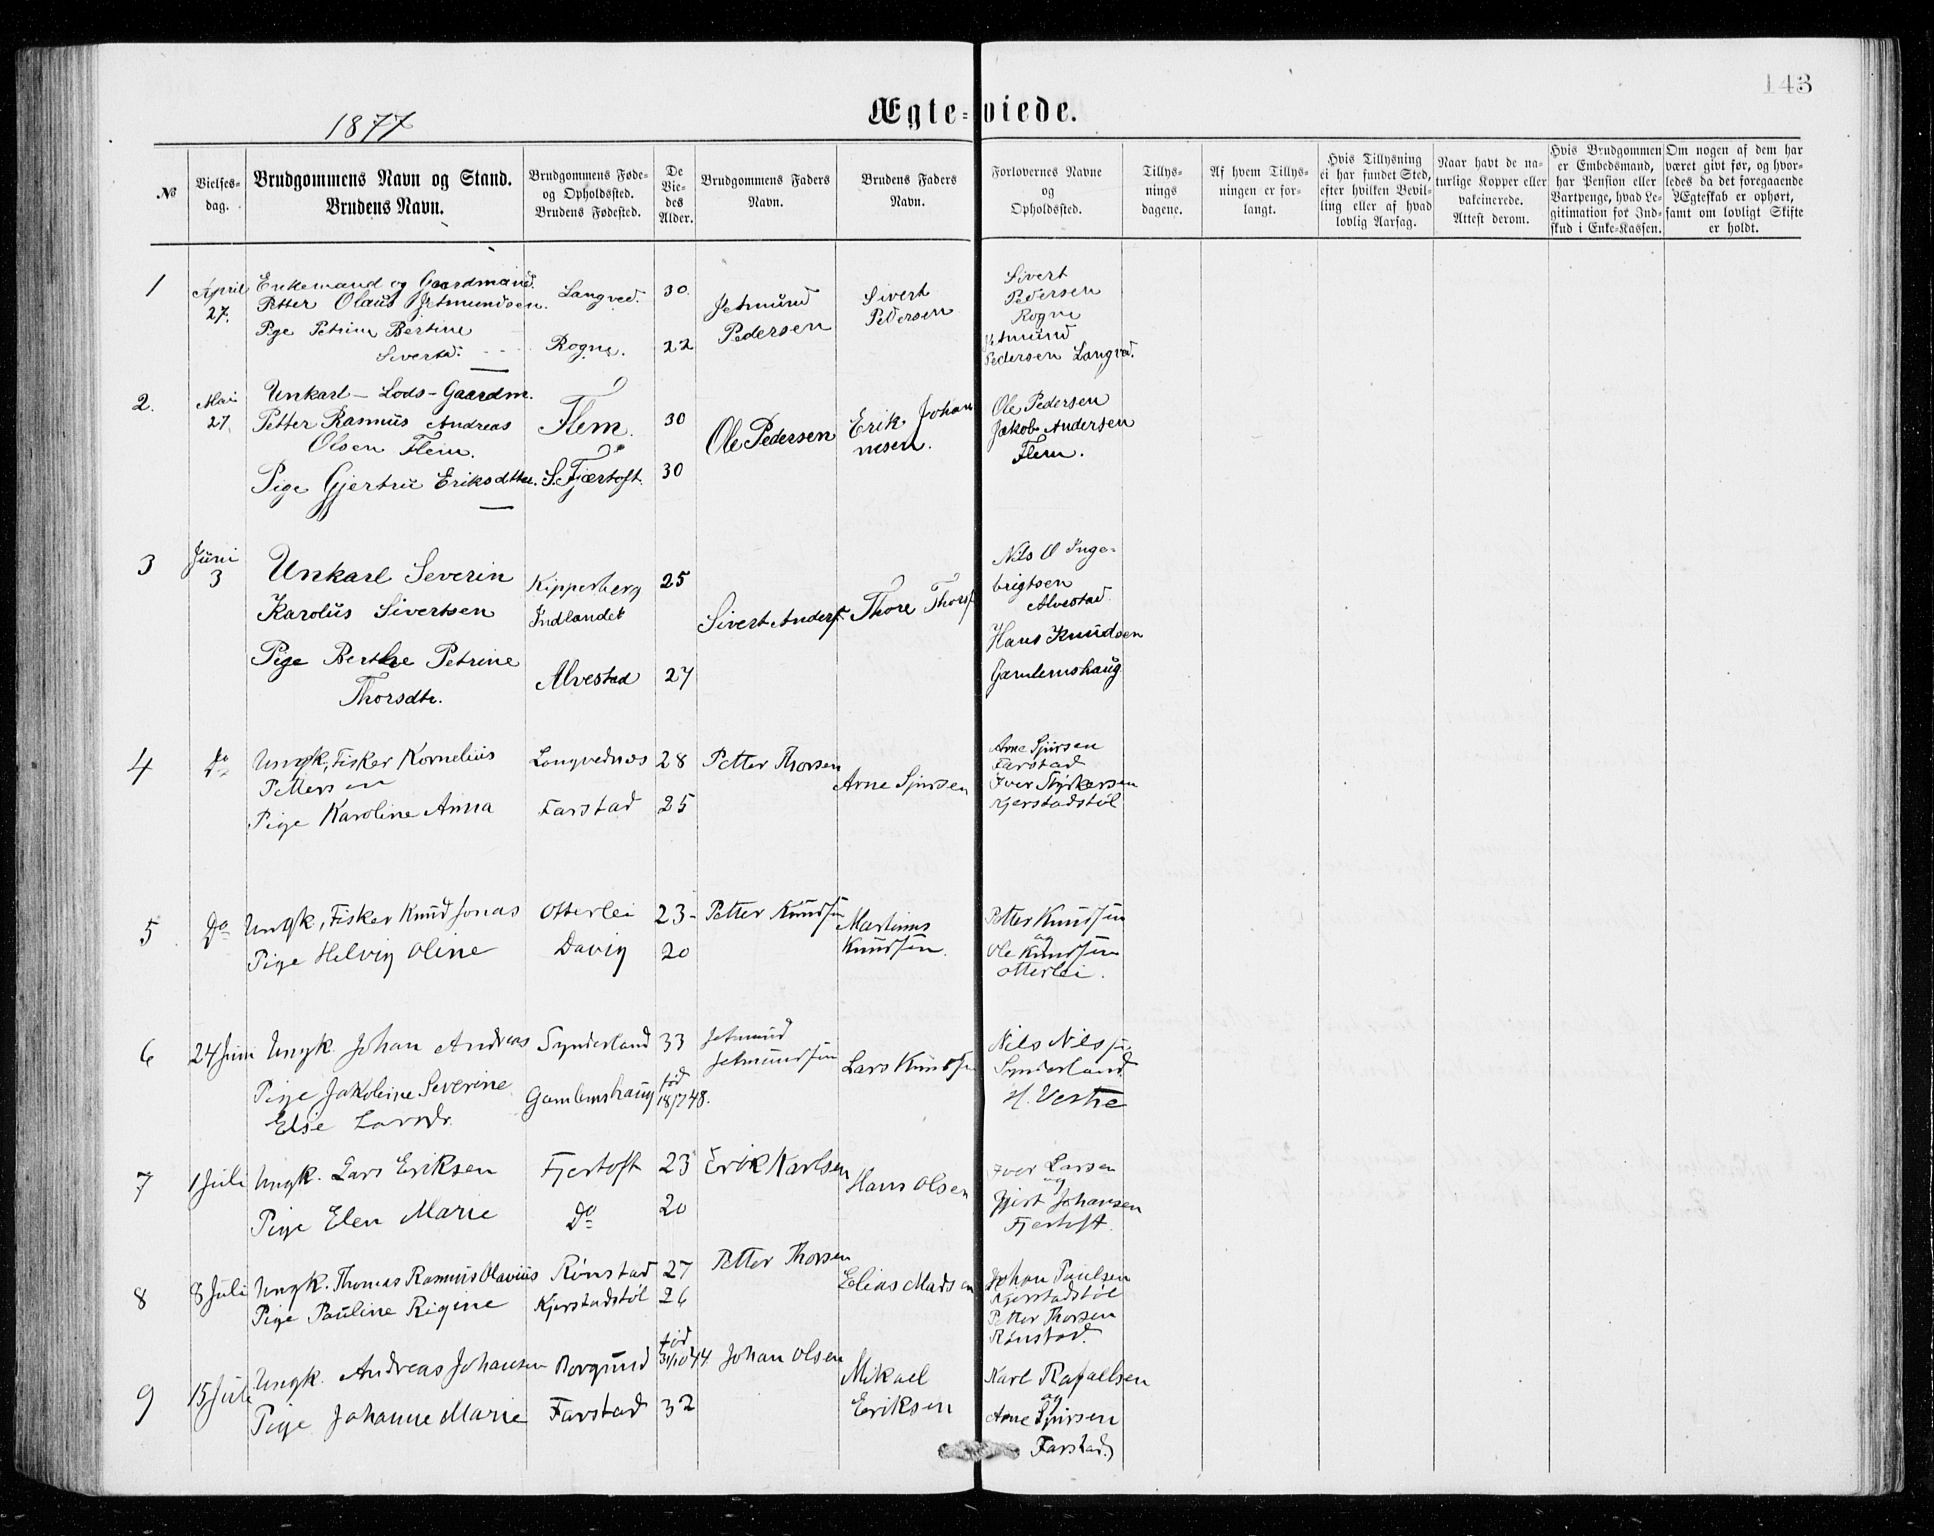 143
1877
Ægte-viede.
No
Vielses-
dag.
Brudgommens Navn og Stand.
Brudens Navn.
Brudgommens Føde-
og Opholdssted.
Brudens Fødested.
De
Vie-
des
Alder.
Brudgommens Faders
Navn.
Brudens Faders
Navn.
Forlovernes Navne
og
Opholdssted.
Tillys-
nings
dagene.
Af hvem Tillys-
ningen er for-
langt.
Hvis Tillysning
ei har fundet Sted,
efter hvilken Bevil-
ling eller af hvad
lovlig Aarsag.
Naar havt de na-
turlige Kopper eller
vakcinerede.
Attest derom.
Hvis Brudgommen
er Embedsmand,
har Pension eller
Vartpenge, hvad Le-
gitimation for Ind-
skud i Enke-Kassen.
Om nogen af dem har
været givt før, og hvor-
ledes da det foregaaende
Ægteskab er ophørt,
samt om lovligt Skifte
er holdt.
1
April
27.
Enkemand og Gaardmand
Petter Olaus Jetmundsen.
Pige Petrine Bertine
Sivertsd.
Langved.
Rogne.
30
22
Jetmund
Pedersen
Sivert
Pedersen
Sivert
Pedersen
Rogne
Jetmund
Pedersen Langved.
2.
Mai
27.
Unkarl - Lods - Gaardm.
Petter Rasmus Andreas
Olsen Flem.
Pige Gjertrue Eriksdtter.
Flem.
S. Fjærtoft.
30
30
Ole Pedersen
Erik Johan
nesen.
Ole Pedersen
Jakob Andersen
Flem.
3
Juni
3
Unkarl Severin
Karolus Sivertsen
Pige Berthe Petrine
Thorsdtr.
Kipperberg
Indlandet
Alvestad
25
27
Sivert Anders.
Thore Thors
Nils O Inge-
brigtsen
Alvestad.
Hans Knudsen
Gamlemshaug
4
Do
Ungk, Fisker Kornelius
Pettersen
Pige Karoline Anna
Longvednes
Farstad
28
25
Petter Thorsen
Arne Sjursen
Arne Sjursen
Farstad
Iver Styrkersen
Kjerstadstøl
5
Do
Ungk, Fisker Knud Jonas
Pige Helvig Oline
Otterlei
Davig
23-
20
Petter Knudsen
Martinus
Knudsen.
Petter Knudsen
og
Ole Knudsen
Otterlei.
6
24 Juni
Ungk. Johan Andreas
Pige Jakobine Severine
Else Larsdr.
Synderland
Gamlemshaug
33
fød
18/7 48.
Jetmund
Jetmundsen
Lars Knudsen
Nils Nilsen
Synderland
H. Vestre
7
1 Juli
Ungk. Lars Eriksen
Pige Elen Marie
Fjertoft
Do
23
20
Erik Karlsen
Hans Olsen
Iver Larsen
og
Gjert Johansen
Fjertoft.
8
8 Juli
Ungk. Thomas Rasmus Olavius
Pige Pauline Rigine
Rønstad
Kjerstadstøl
27
26
Petter Thorsen
Elias Madsen
Johan Paulsen
Kjerstadstøl
Petter Thorsen
Rønstad.
9
15 Juli
Ungk. Andreas Johansen
Pige Johanne Marie
Borgund
Farstad
fød
31/10 44.
32
Johan Olsen
Mikael
Eriksen
Karl Rafaelsen
og
Arne Sjursen
Farstad.